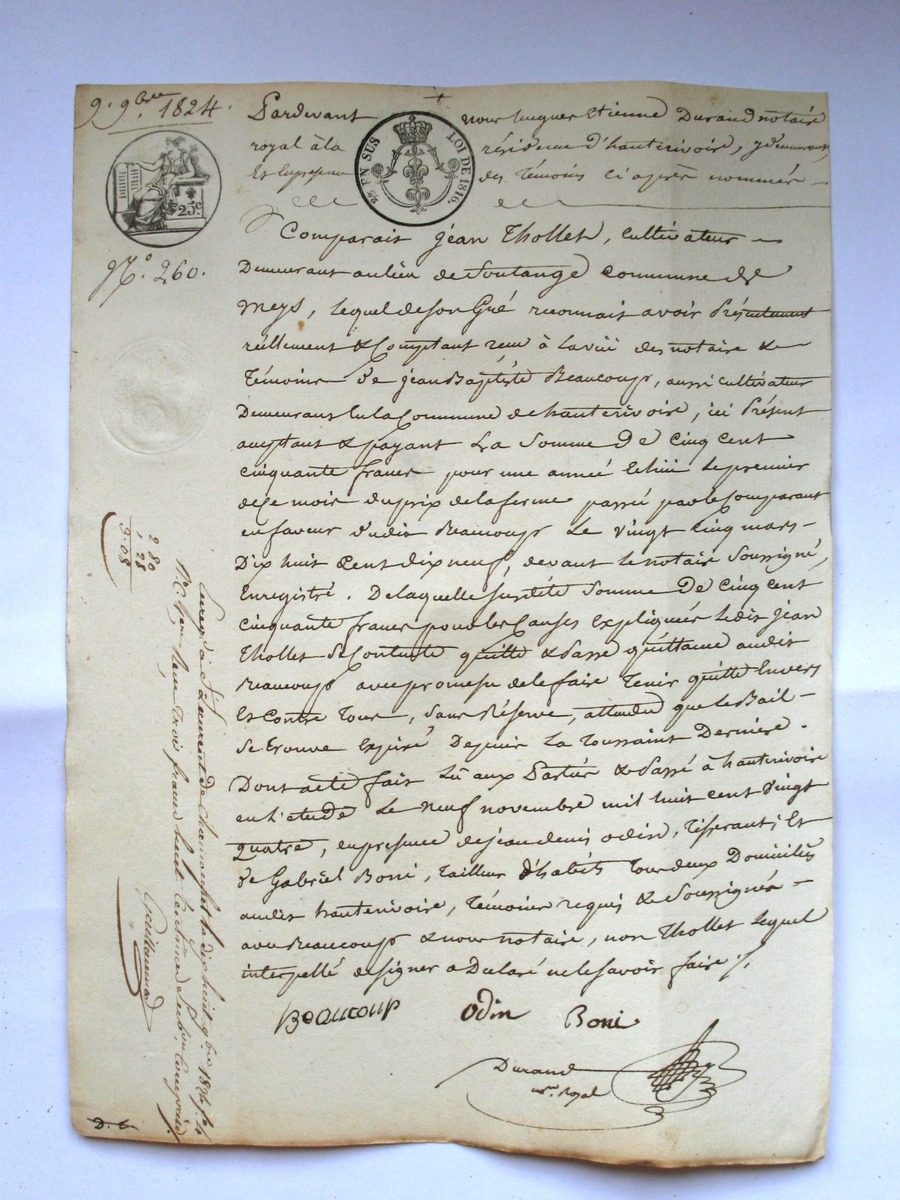 9. 9bre 1824.
Pardevant nous hugues Etienne Durand notaire
royal à la résidence d'hauterivoire, y demeurant
Et En presence des Témoins ci après nommés
25c
EN SUS LOI DE 1816.
N.o 260.
Comparait jean Thollet, Cultivateur
Demeurant au lieu de Soulange Commune de
Meys, lequel de son Gré reconnait avoir Présentement
réellement & Comptant recu à la vüe des notaire &
Témoins De jean Baptiste Beaucoup, aussi Cultivateur
Demeurant En la Commune de hauterivoire, ici Présent
acceptant & payant La Somme De Cinq Cent
Cinquante francs pour une année Echüe le premier
de Ce mois du prix de la ferme passée par le Comparant
en faveur dudit Beaucoup Le Vingt Cinq mars
Dix huit Cent dix neuf, devant le notaire Soussigné,
Enregistré. De laquelle susdite Somme De Cinq Cent
Cinquante francs pour les Causes Expliquées ledit jean
Thollet Se Contente quitte & Passe quittance audit
Beaucoup avec promesse de le faire Tenir quitte Envers
Et Contre Tous, Sans Réserve, attendu que le Bail
Se trouve Expiré Depuis La Toussaint Dernière.
Dont acte fait Lû aux Parties & Passé à hauterivoire
en l'étude Le neuf novembre mil huit cent Vingt
quatre, en presence de jean denis odin, Tisserant; Et
de Gabriel Boni, Tailleur d'habits Tous deux Domiciliés
audit hauterivoire, Témoins requis & Soussignés
avec Beaucoup & nous notaire, non Thollet lequel
interpellé de signer a Déclaré ne le Savoir faire ./.
Beaucoup Odin Boni
Durand
nre. Royal
2 80
1. 25
Enreg. à St Laurent de Chamousset le dix huit 9bre 1824 fo
Reçu trois francs huit Centimes Subon Compris
D. 6.